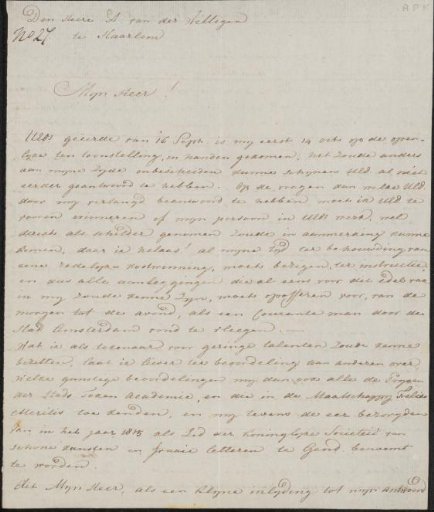 Den Heere A van der Willigen
No 27 te Haarlem
APK
Mijn Heer!
UEds geëerde van 16 Sept. is mij eerst 14 octr op de
ten toonstelling, in handen gekomen, het zoude anders
aan mijne zijde onbescheiden kunnen schijnen UEd al niet
eerder geantwoord te hebben. Op de vragen dan welke UEd
door mij verlangd beantwoord te hebben moet ik UEd te
vooren erinneren of mijn persoon in UEds werk, wel
directe als schilder genomen zoude in aanmerking kunnen
komen, daar ik helaas! al mijne tijd ter behouding van
eene redelyke bestaan, moest bezigen, ter instructie
en dus alle aanleggingen die al eens voor dit edele vak
in mij zoude kunne zijn, moest opofferen voor, van de
morgen tot de avond, als een Courante man door de
Stad Amsterdam rond te vliegen.
Wat ik als tekenaar voor geringe talenten zoude kunne
bezitten, laat ik liever ter beoordeling aan anderen over,
welke gunstige beoordelingen mij dan ook alle de
der Stads teken Academie, en die in de Maatschappij Felix
Meritis toe deden, en mij tevens de eer bezorgden
van in het jaar 1815 als Lid der Koninglyke Societeit van
schoone kunsten en fraaie letteren te Gend benoemt
te worden.
Mijn Heer, als een klijne inlijding tot mijn antwoord